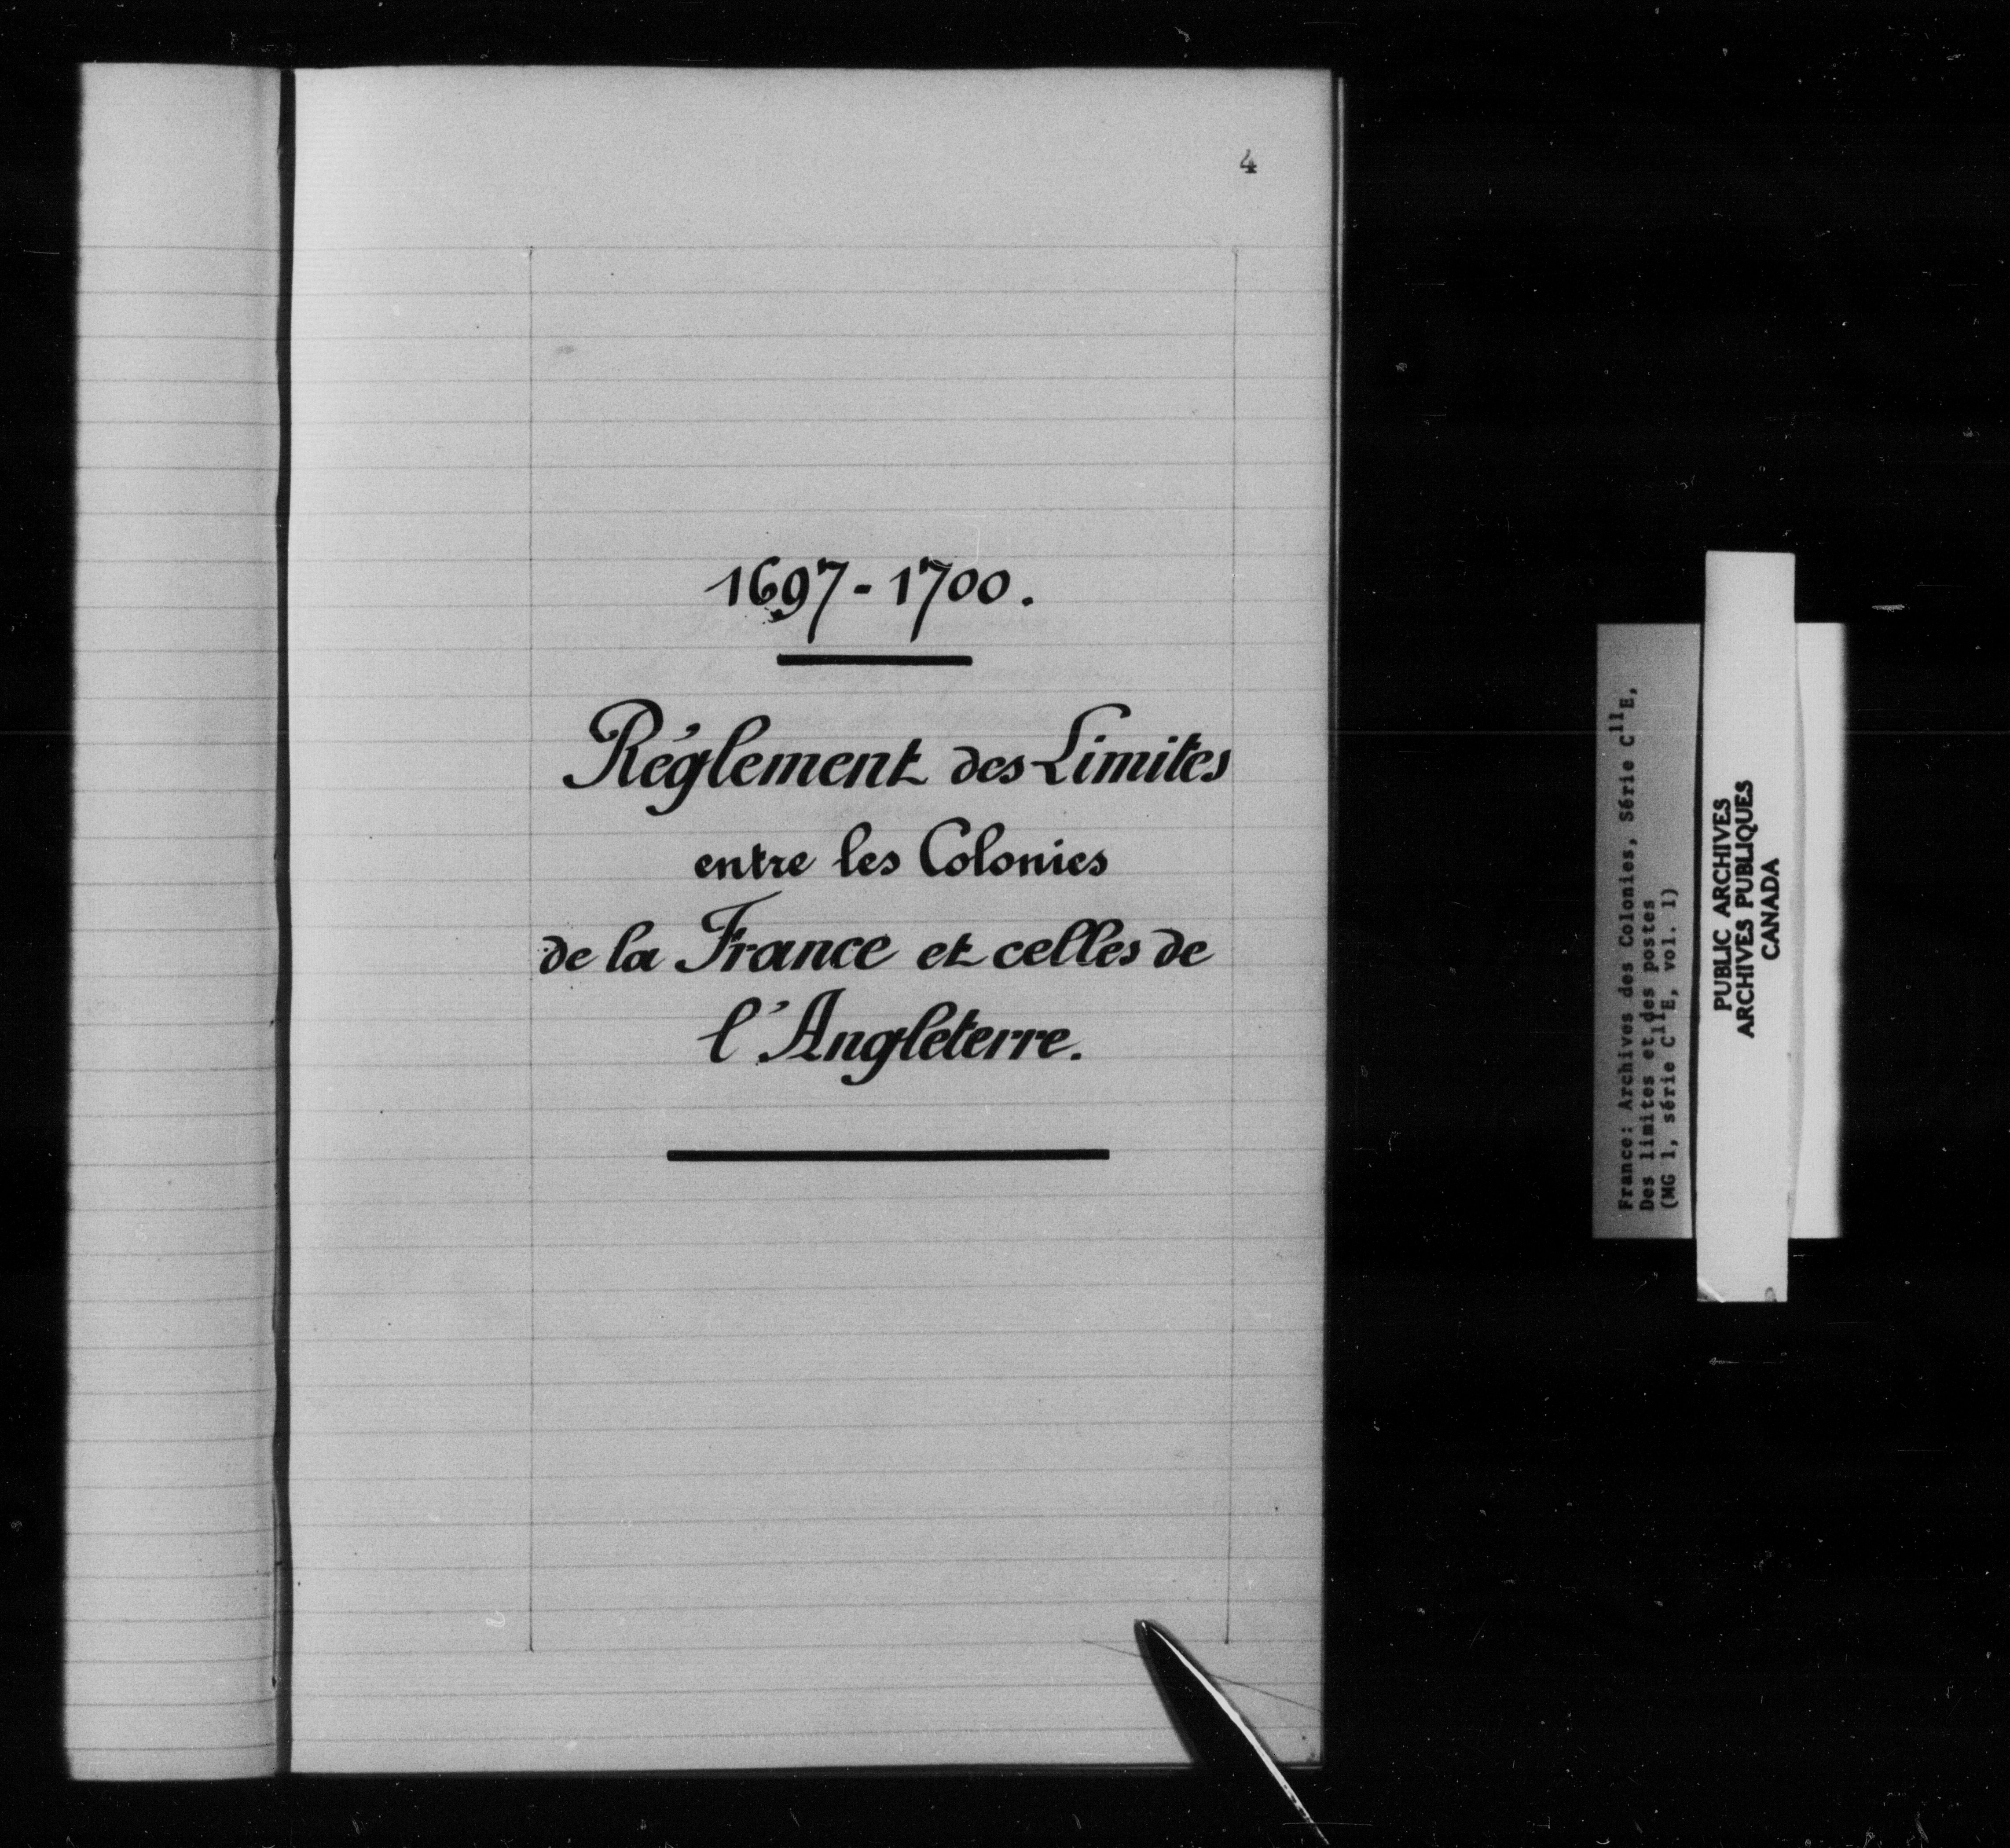 4
1697-1700.
Réglement des Limites
entre les Colonies
de la France et celles de
l'Angleterre.
France: Archives des Colonies, Série C11E,
Des limites et des postes
(MG 1, série C11E, vol. 1)
PUBLIC ARCHIVES
ARCHIVES PUBLIQUES
CANADA